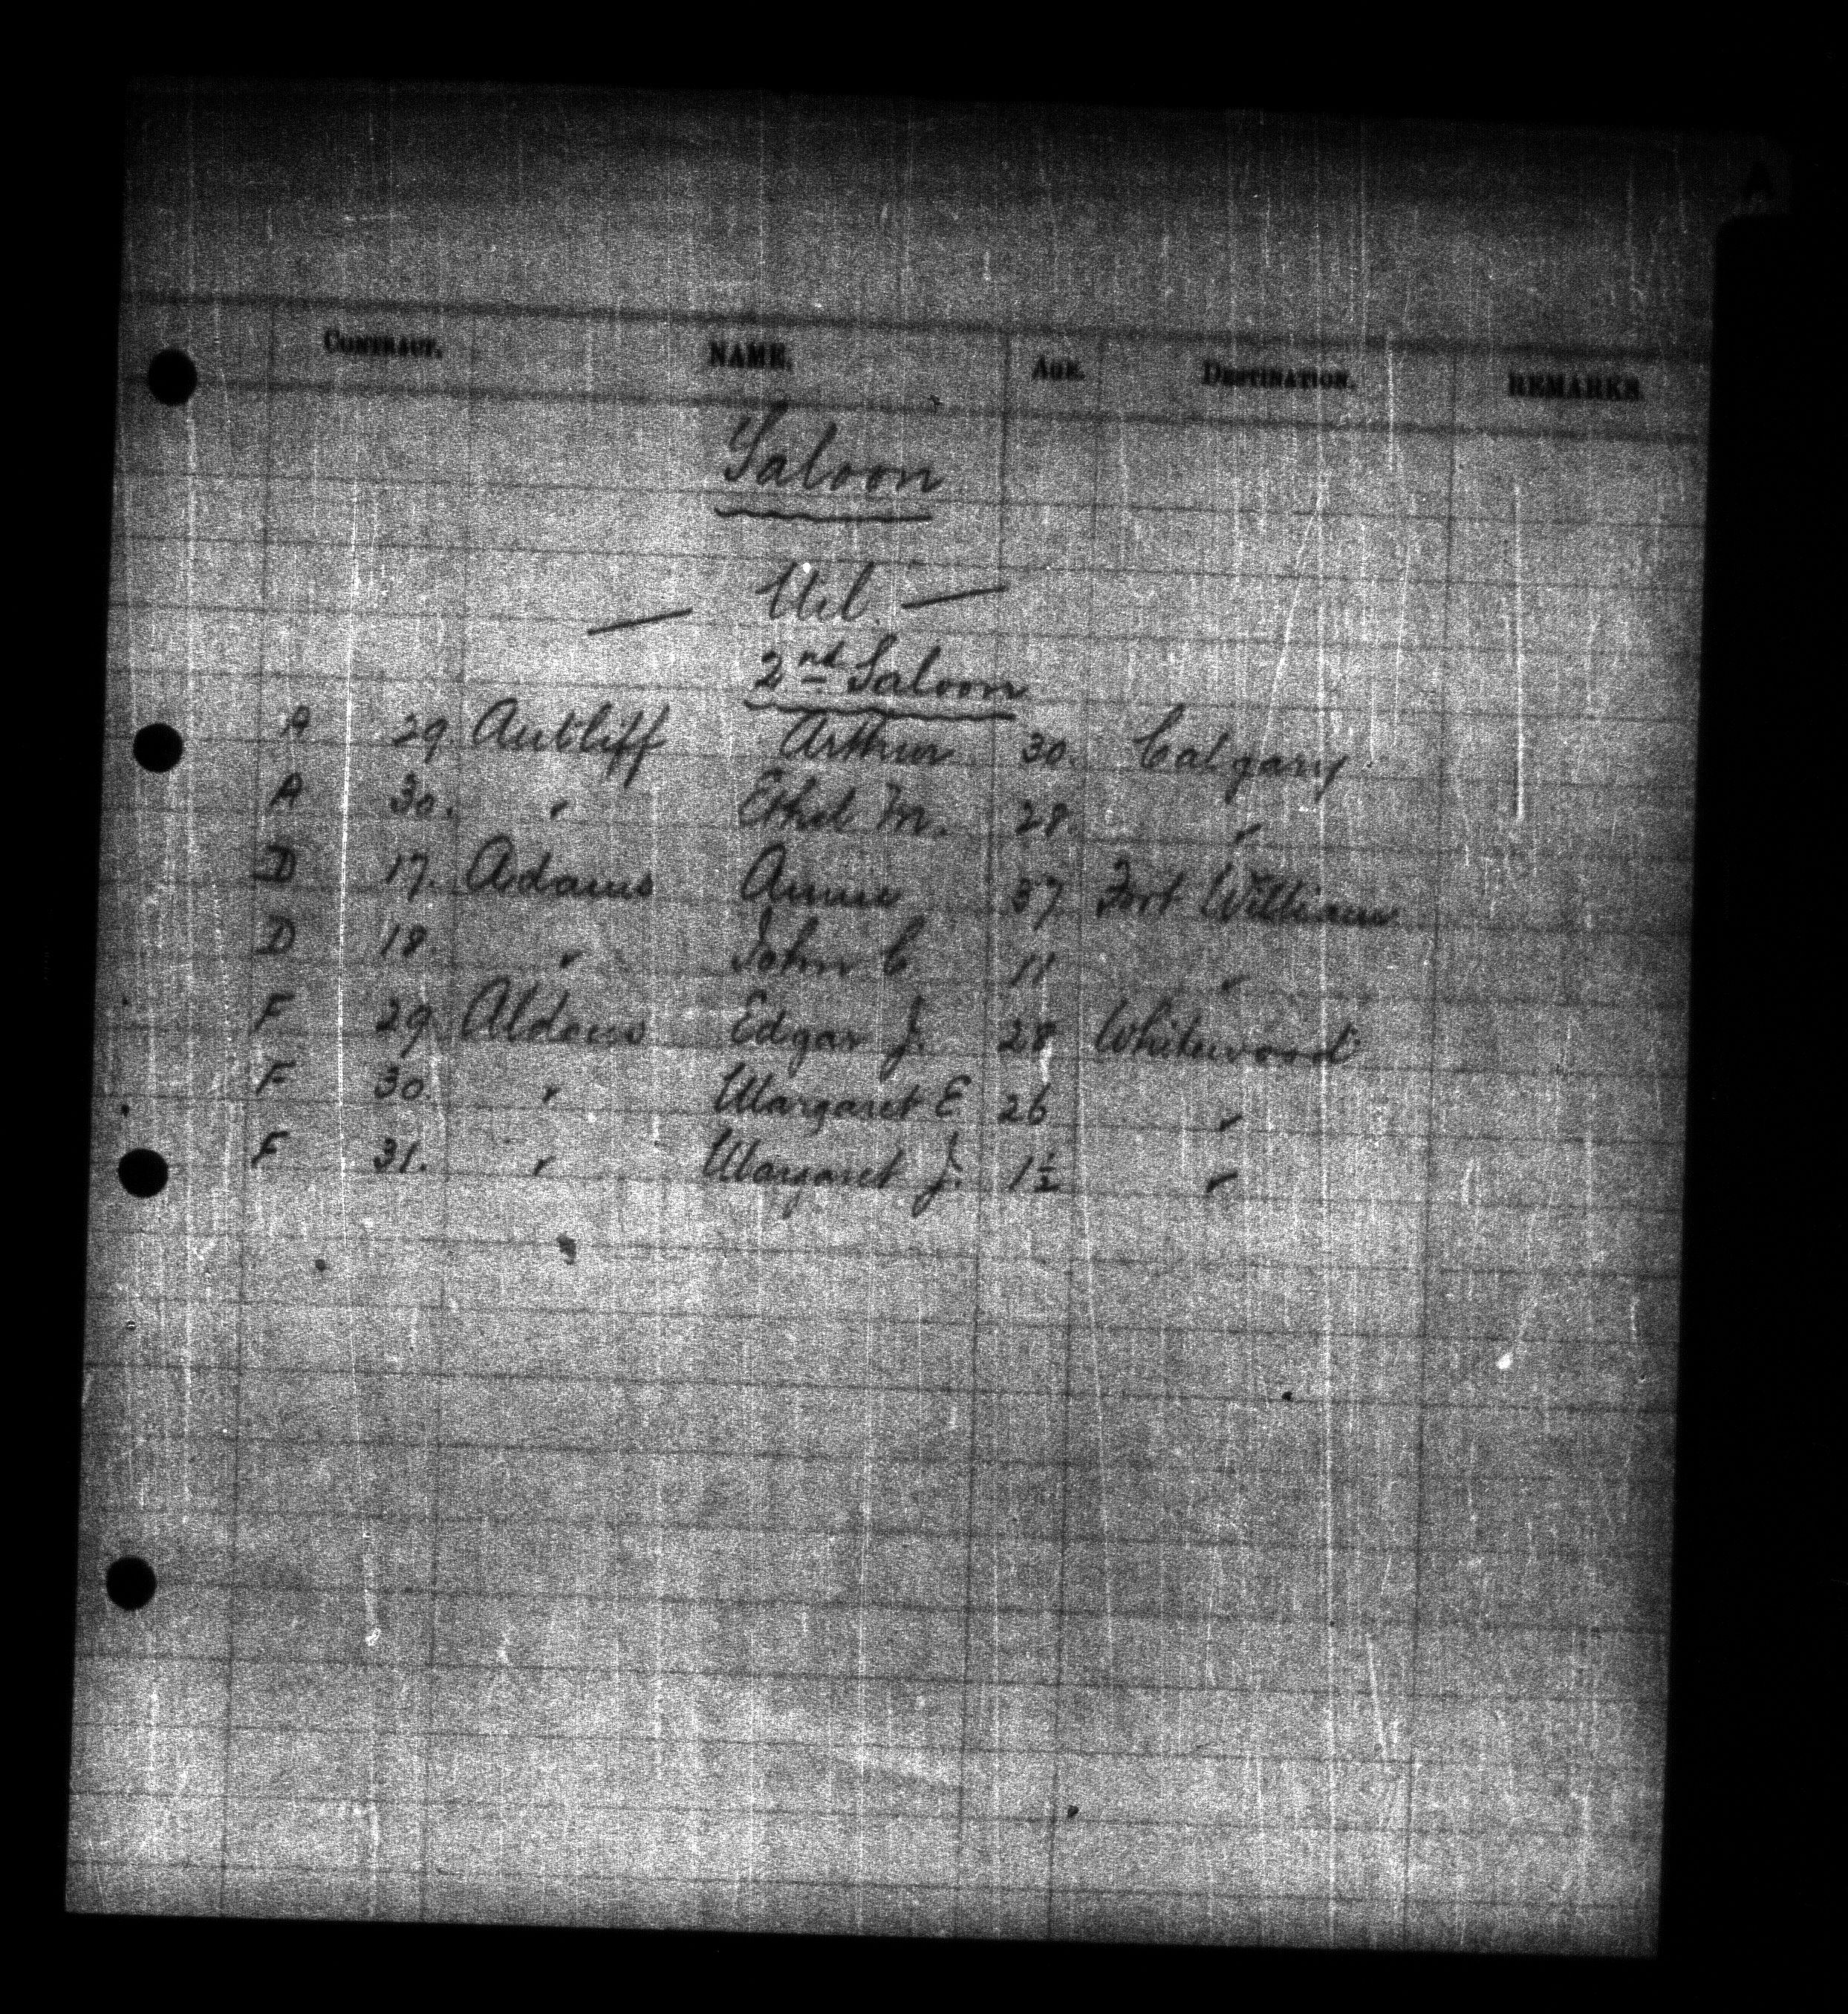 A
CONTRACT. NAME. AGE. DESTINATION. REMARKS
Saloon
— Nil. —
2nd Saloon
A 29. Arthur 30. Calgary
A 30. " Ethel M. 28. "
D 17. Adams Annie 37 Fort William
D 18. " John C. 11 "
F 29. Edgar J. 28 Whitewood
F 30. " Margaret E 26 "
F 31. " Margaret J. 1½ "